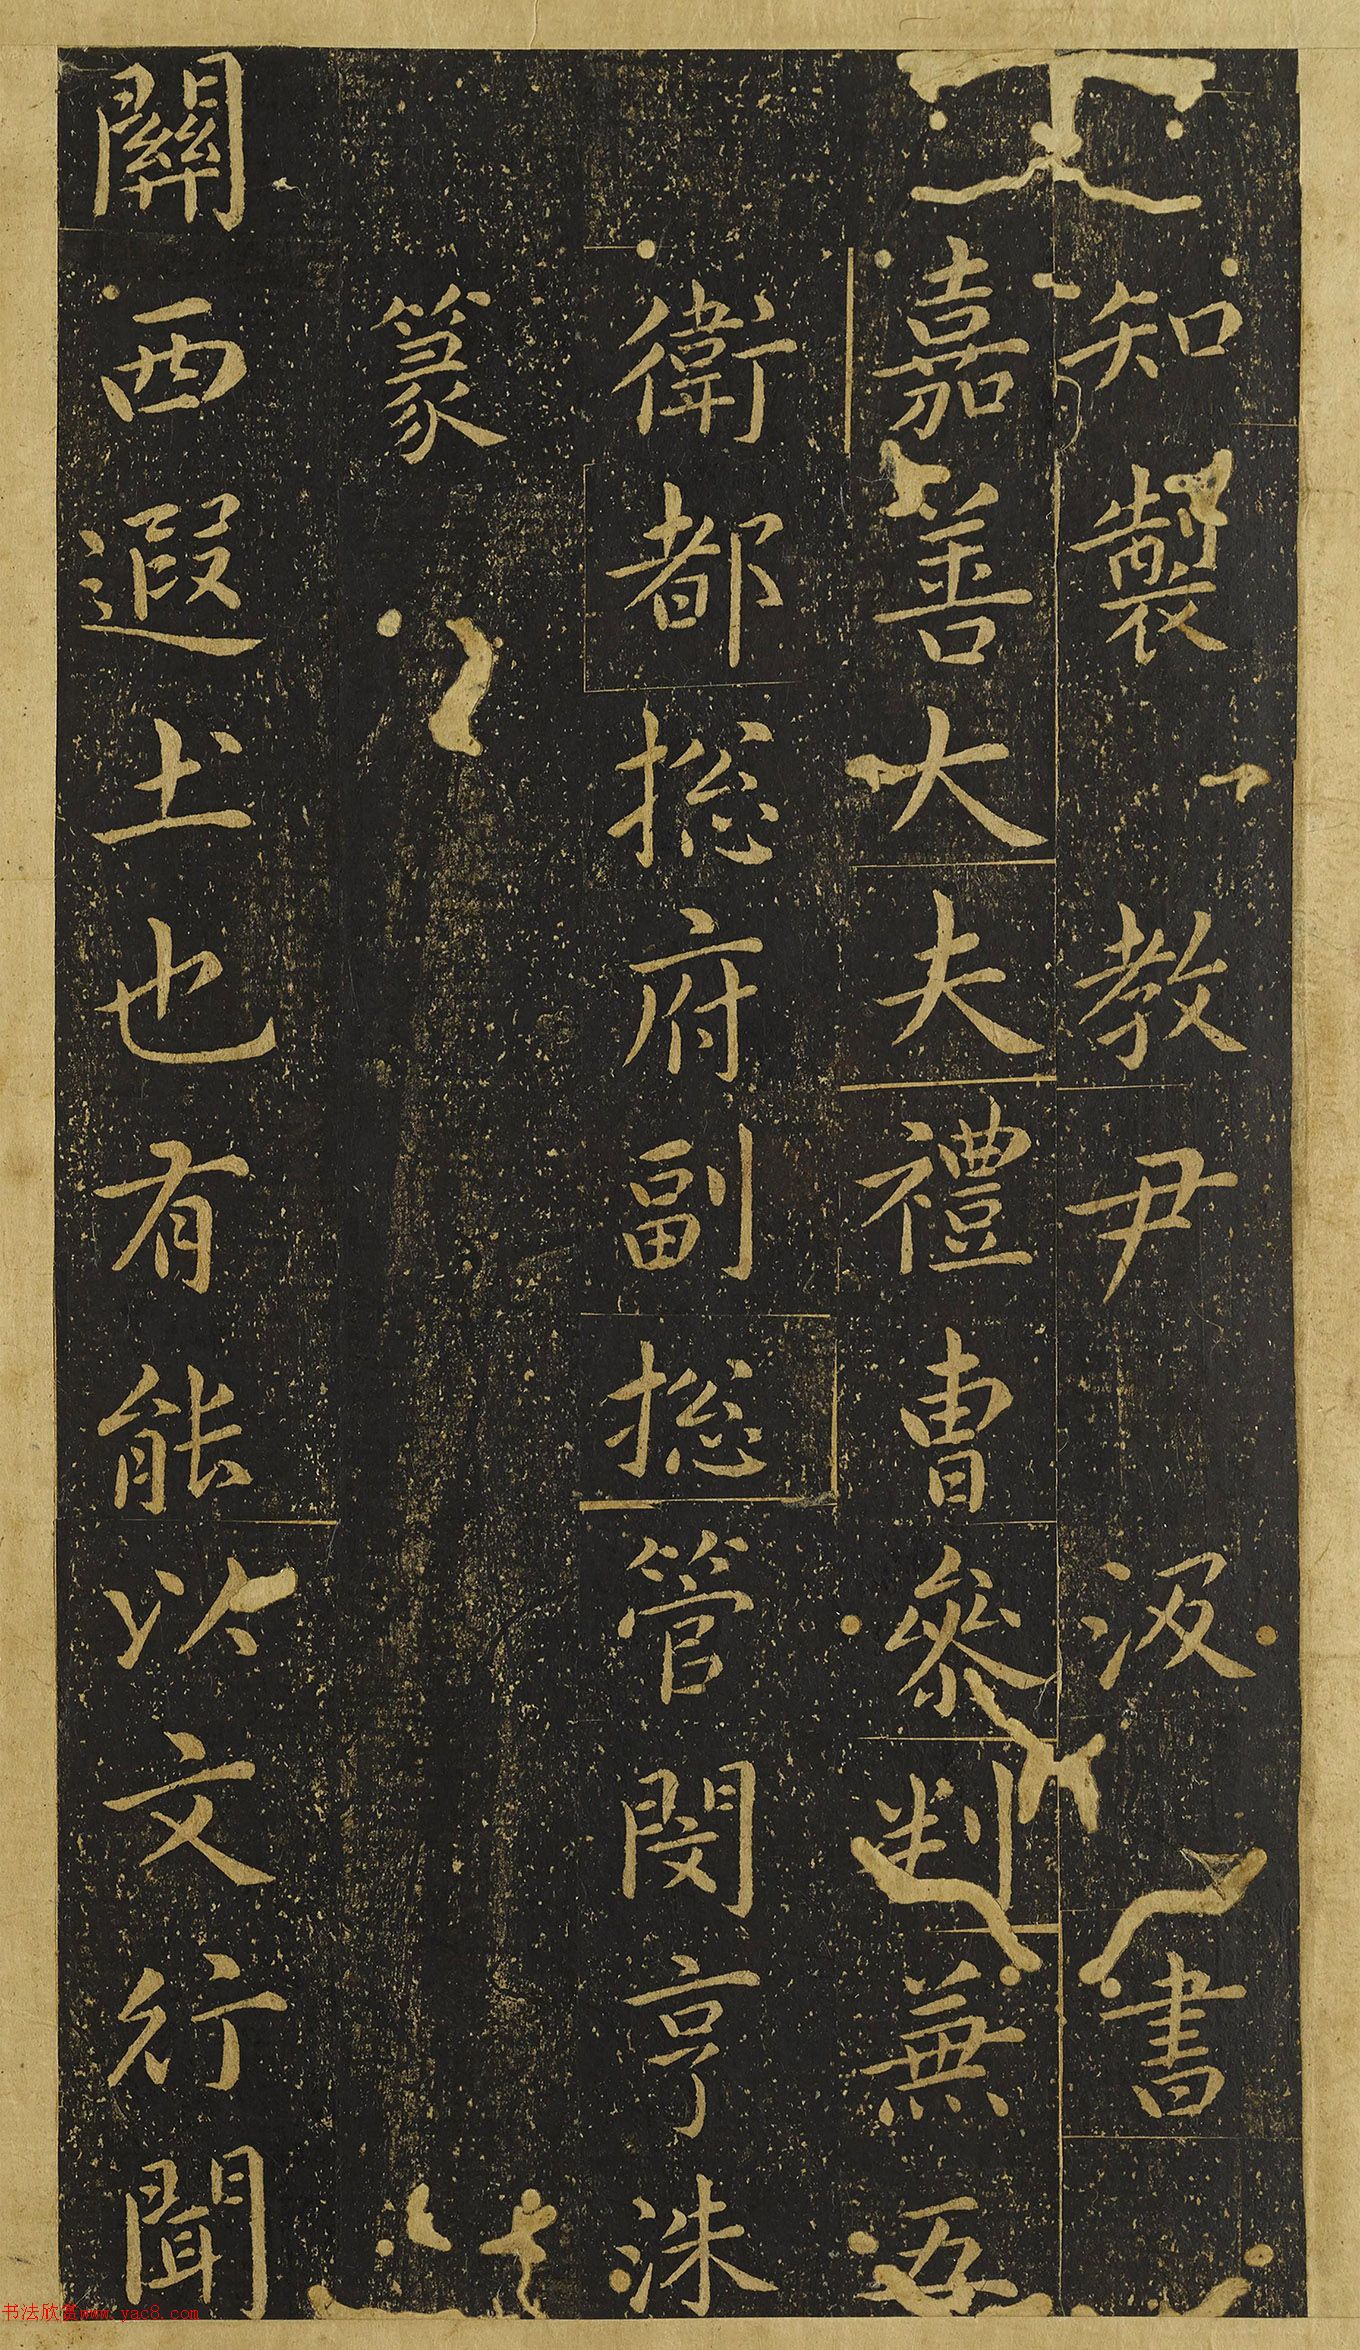 知製教尹汲書
嘉善大夫禮曹參判蕪五
衛都捴府副捴管閔亨洙
篆
關西遐土也有能以文行聞
书法欣赏www.yac8.com